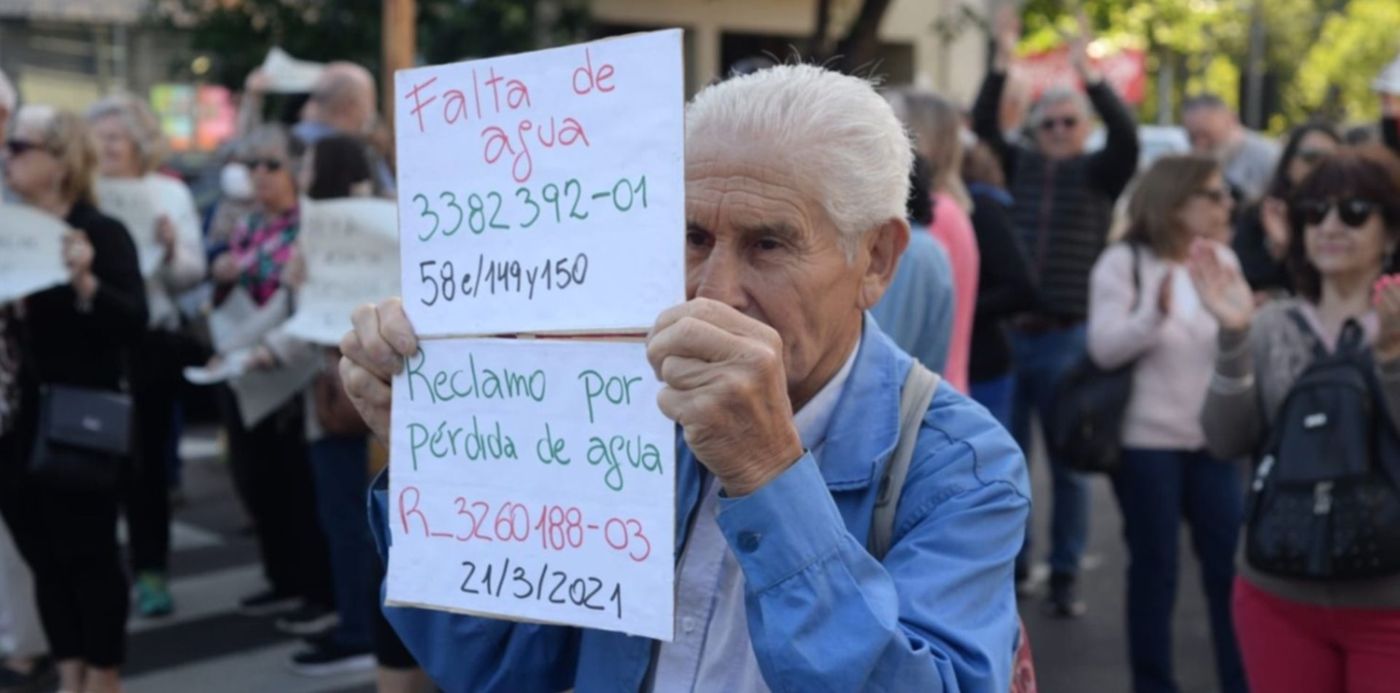 Falta de
agua
3382392-01
58 e/149 y 150
Reclamo por
pérdida de agua
R_3260188-03
21/3/2021